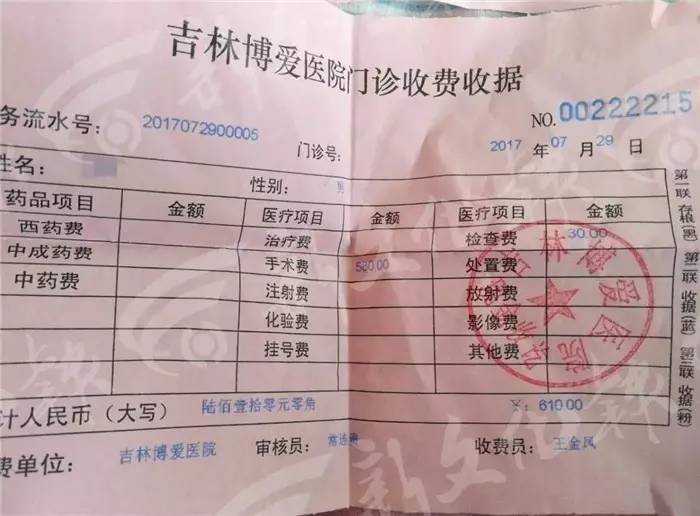 吉林博爱医院门诊收费收据
务流水号: 2017072900005 门诊号: NO.00222215
2017 年 07 月 29 日
姓名: 性别: 男
药品项目 金额 医疗项目 金额 医疗项目 金额
西药费 治疗费 检查费 30.00
中成药费 手术费 580.00 处置费
中药费 注射费 放射费
化验费 影像费
挂号费 其他费
计人民币（大写） 陆佰壹拾零元零角 ¥: 610.00
费单位: 吉林博爱医院 审核员: 收费员: 王金凤
第一联 存根(黑) 第二联 收据(蓝) 第三联 收据(粉
吉林博爱医院
新文化報